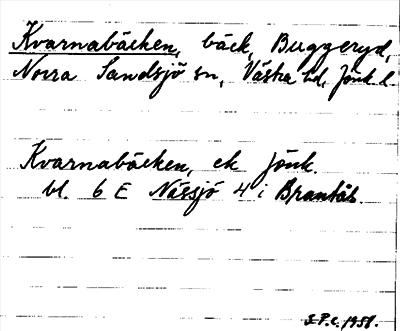 Kvarnabäcken, bäck, Buggeryd,
Norra Sandsjö sn, Västra hd, Jönk. l.
Kvarnabäcken, ek Jönk.
bl. 6 E Nässjö 4 i Brantås.
1958.